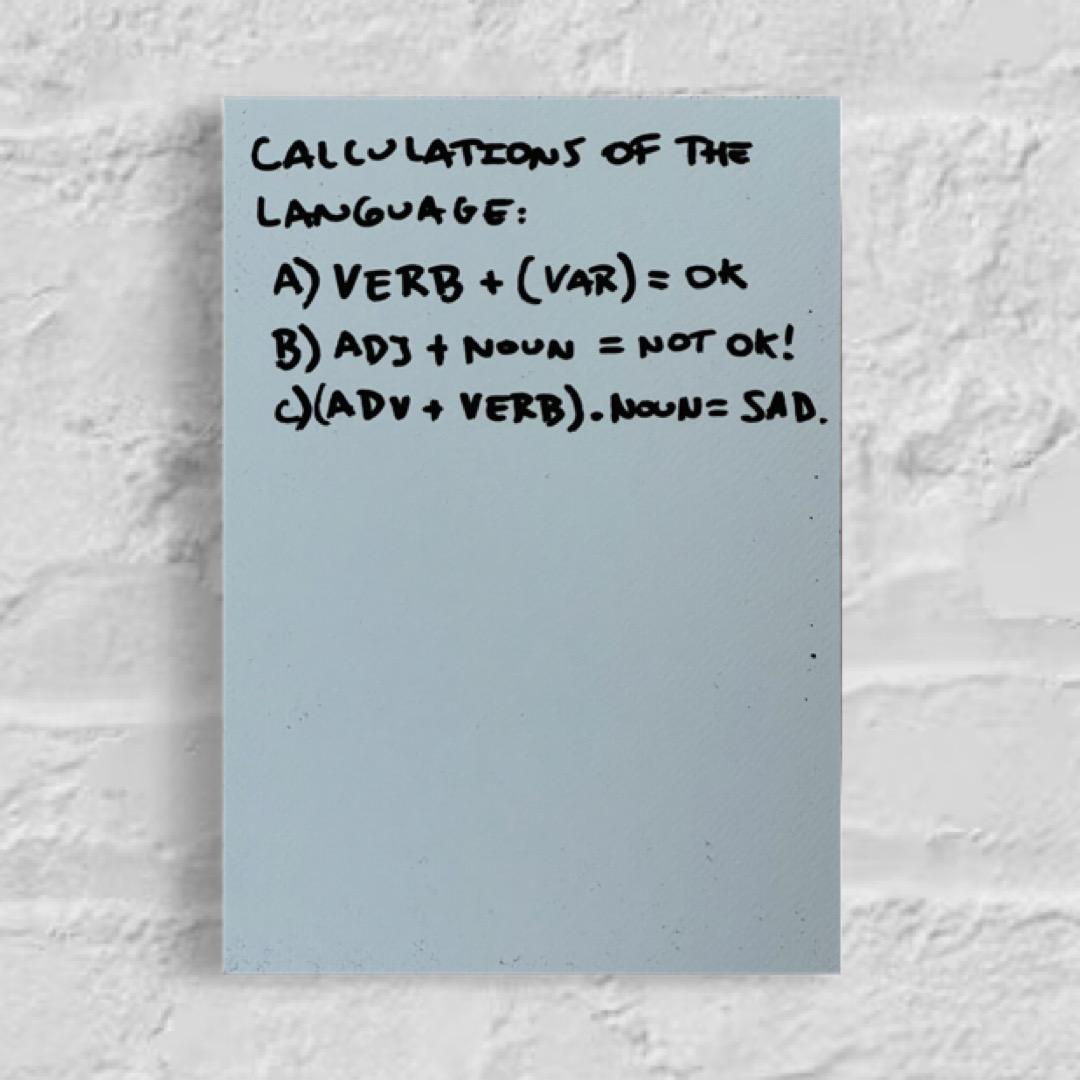 CALCULATIONS OF THE
LANGUAGE:
A) VERB + (VAR) = OK
B) ADJ + NOUN = NOT OK!
C) (ADV + VERB). NOUN = SAD.